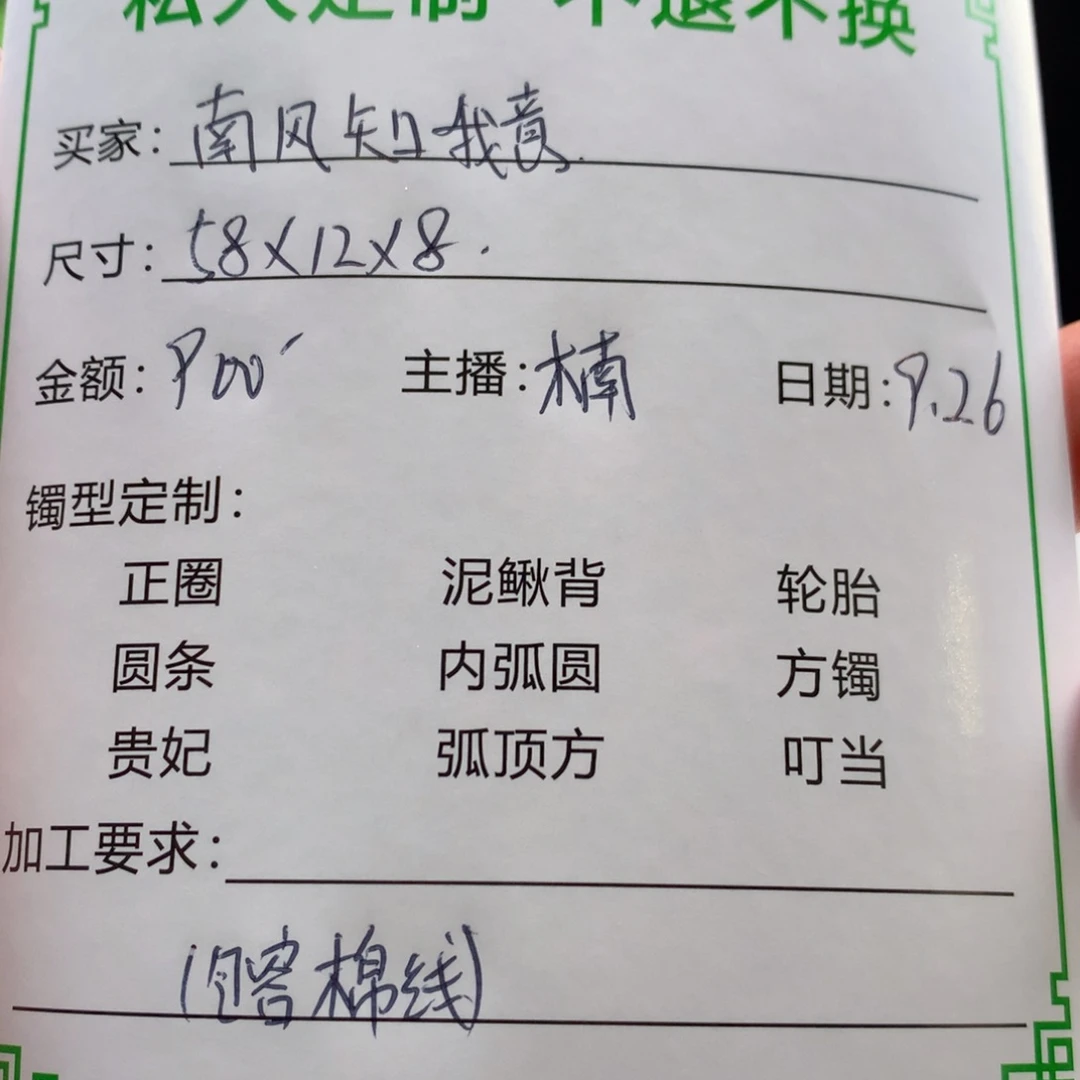 私人定制 不退不换
买家：南风知我意
尺寸：58×12×8.
金额：900 主播：楠 日期：9.26
镯型定制：
正圈 泥鳅背 轮胎
圆条 内弧圆 方镯
贵妃 弧顶方 叮当
加工要求：
棉线)